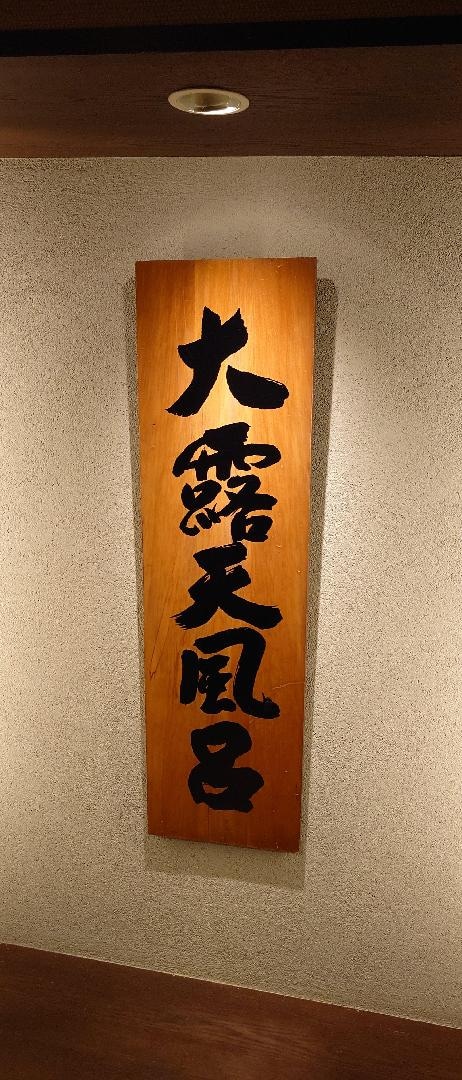 大露天風呂